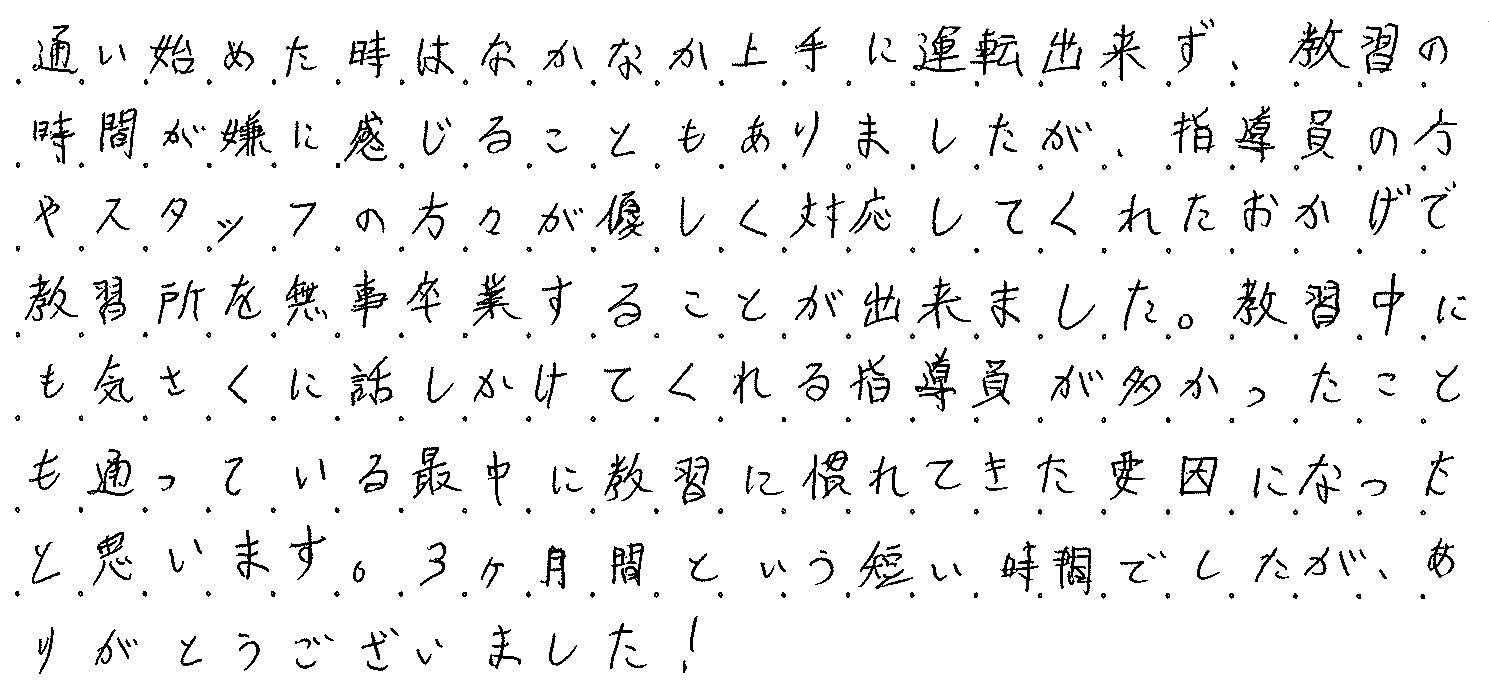 通い始めた時はなかなか上手に運転出来ず、教習の
時間が嫌に感じることもありましたが、指導員の方
やスタッフの方々が優しく対応してくれたおかげで
教習所を無事卒業することが出来ました。教習中に
も気さくに話しかけてくれる指導員が多かったこと
も通っている最中に教習に慣れてきた要因になった
と思います。3ヶ月間という短い時間でしたが、あ
りがとうございました!